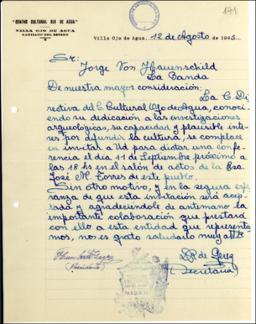 "CENTRO CULTURAL OJO DE AGUA"
VILLA OJO DE AGUA
SANTIAGO DEL ESTERO
Villa Ojo de Agua, 12 de Agosto de 1945
Sr.
Jorge Von Hauenschild
La Banda
De nuestra mayor consideración:
La C. Di-
rectiva del C. Cultural Ojo de Agua, conocien-
do su dedicación a las investigaciones
arqueológicas, su capacidad y plausible inte-
rés por difundir la cultura, se complace
en invitar a Ud para dictar una con-
ferencia el día 11 de Septiembre próximo a
las 18 hs en el salón de actos de la Esc.
José M. Torres de este pueblo.
Sin otro motivo, y en la segura espe-
ranza de que esta invitación será acep-
tada y agradeciéndole de antemano la
importante colaboración que prestará
con ello a esta entidad que representa-
mos, nos es grato saludarlo muy atte
(Secretaria)